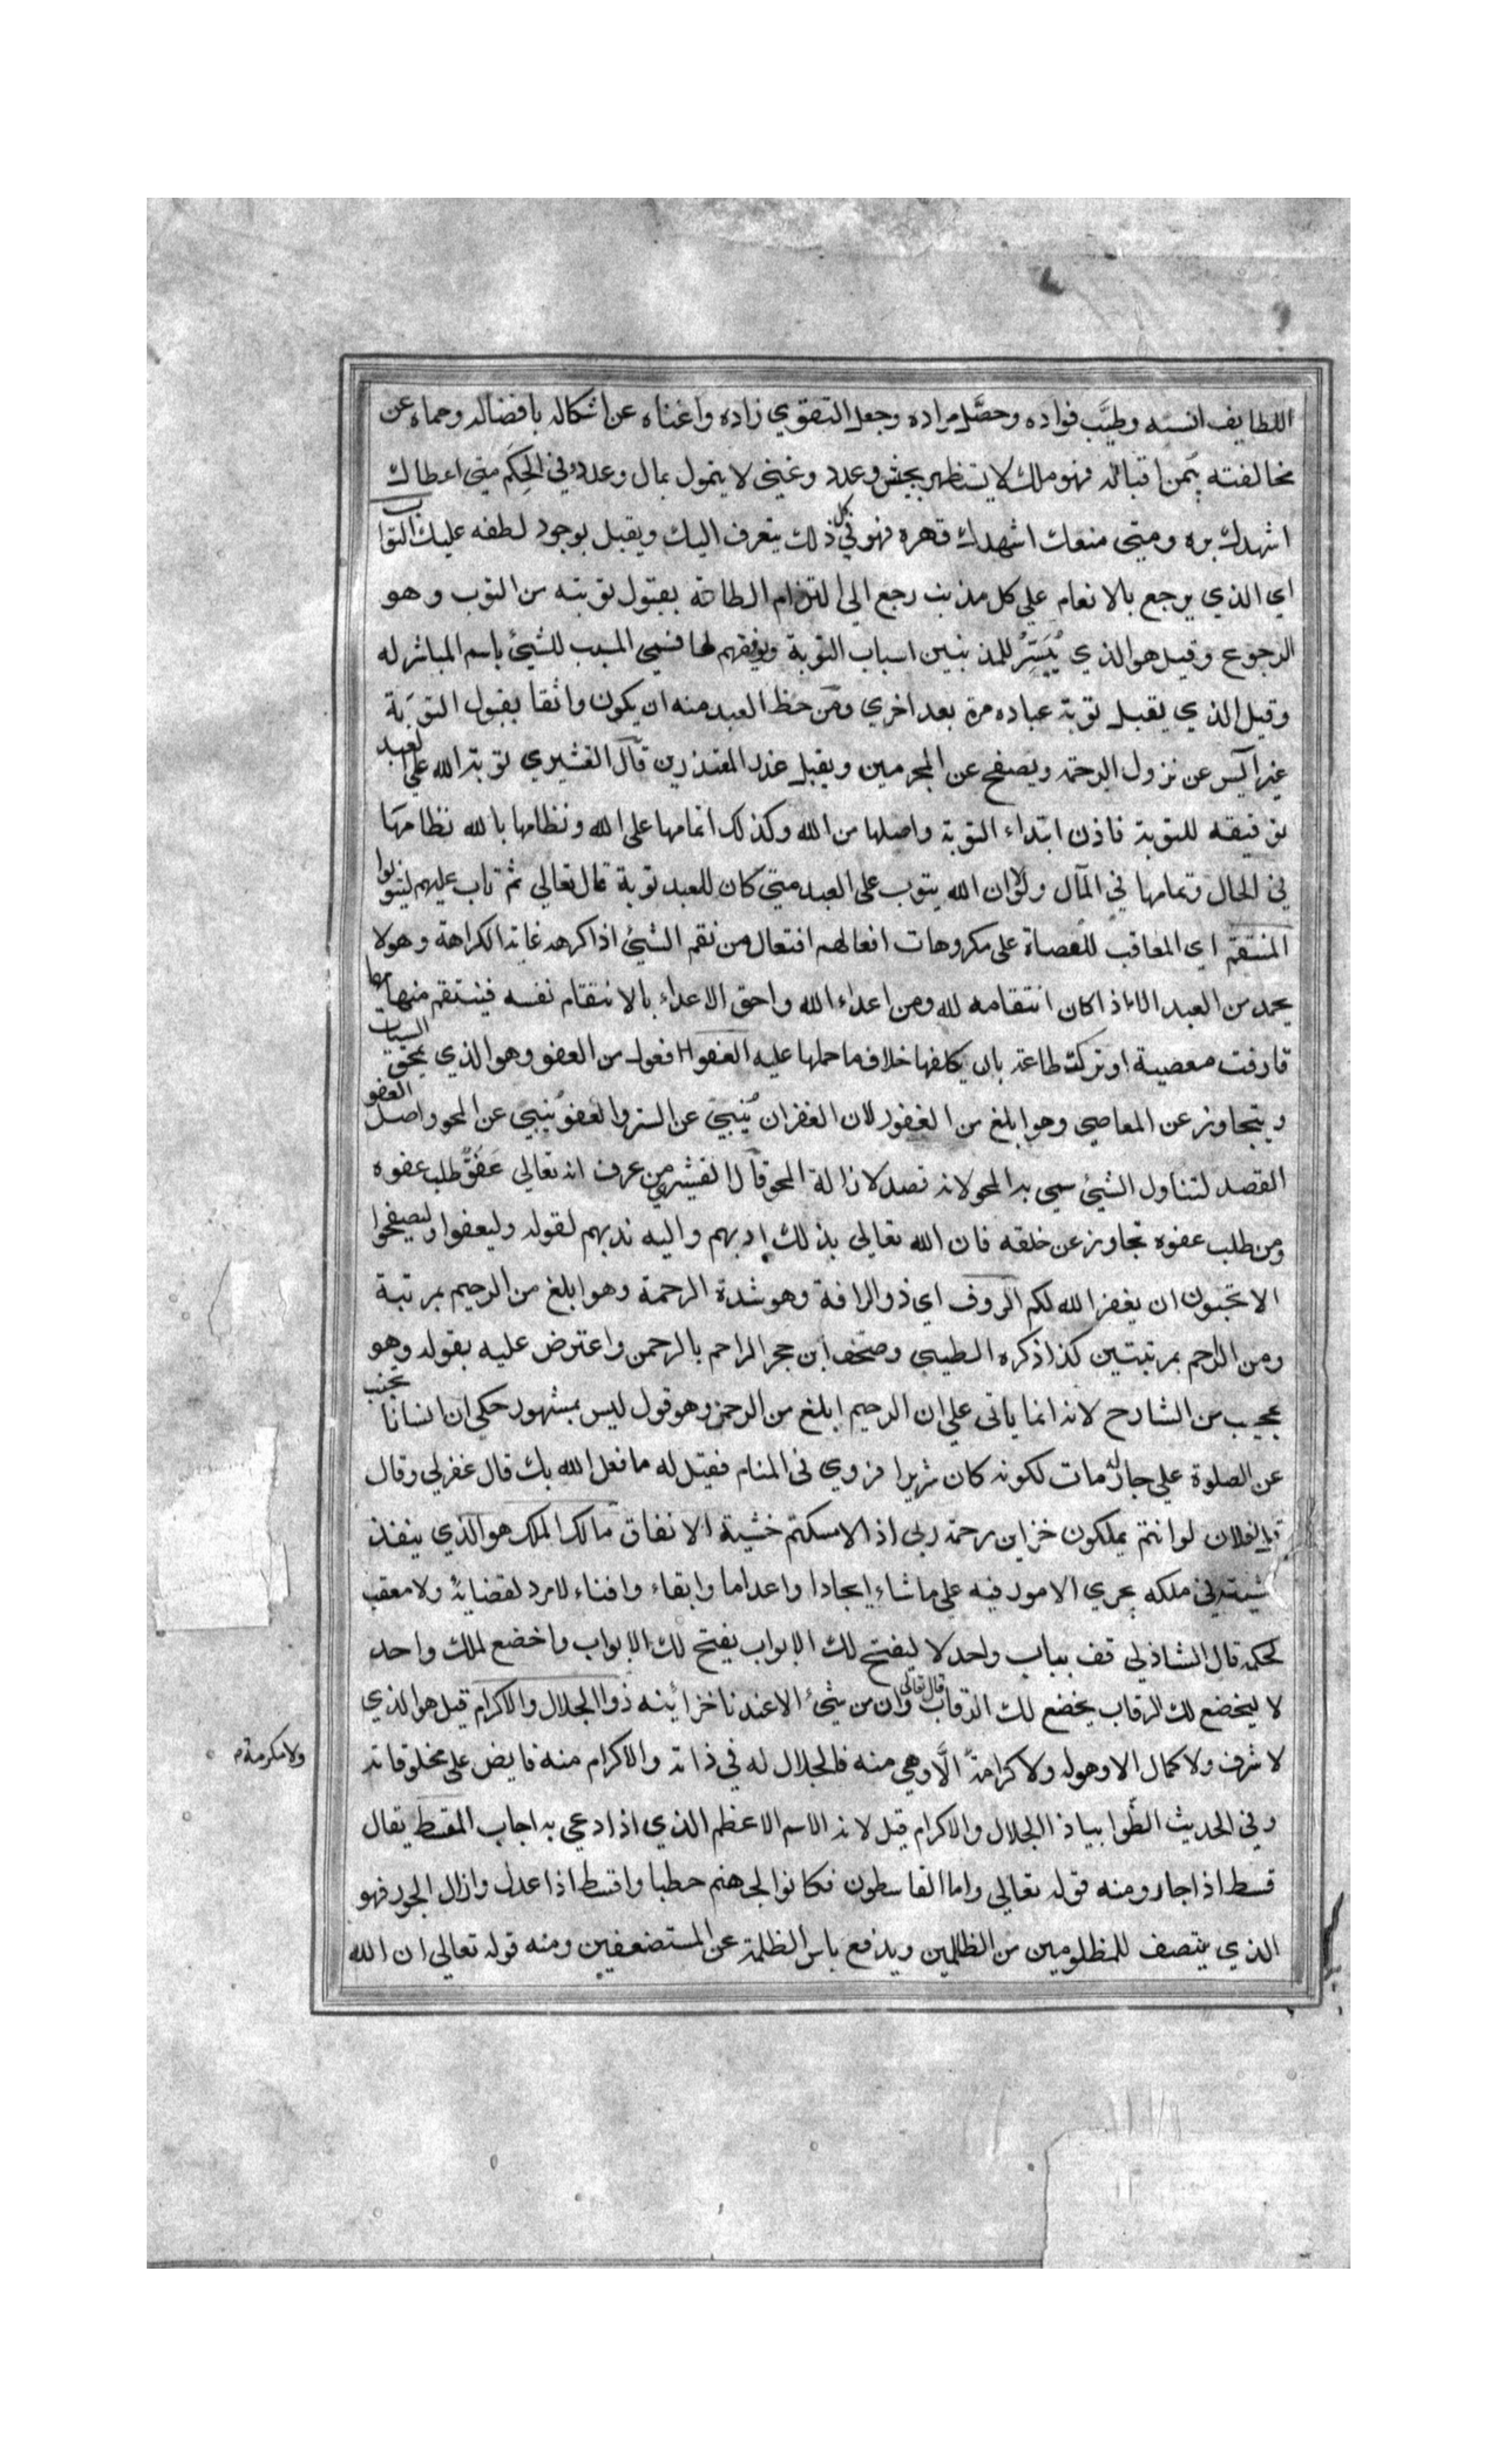 اللطايف انسته وطيَّب فواده وحصَّل مراده وجعل التقوي زاده واغناه عن اشكاله بافضاله وحماه عن
مخالفته بيمن اقباله فهو ملك لا يستظهر بجيش وعدد وغني لا يتمول بمال وعدد وفي الحِكَم متي اعطاك
اشهدك بره ومتي منعك اشهدك قهره فهو في كل ذلك يتعرف اليك ويقبل بوجود لطفه عليك التواب
اي الذي يرجع بالانعام علي كل مذنب رجع الي التزام الطاعة بقبول توبته من التوب وهو
الرجوع وقيل هو الذي يُيَسِّرُ للمذنبين اسباب التوبة ويوفقهم لها فسمي المسبب للشيئ باسم المباشر له
وقيل الذي يقبل توبة عباده مرة بعد اخري ومن حظ العبد منه ان يكون واثقا بقبول التوبة
غير آيس عن نزول الرحمة ويصفح عن المجرمين ويقبل عذر المعتذرين قال القشيري توبة الله علي لعبد
توفيقه للتوبة فاذن ابتداء التوبة واصلها من الله وكذلك اتمامها علي الله ونظامها بالله نظامها
في الحال وتمامها في المآل ولولا ان الله يتوب علي العبد متي كان للعبد توبة قال تعالي ثم تاب عليهم ليتوبوا
المنتقم اي المعاقب للعصاة علي مكروهات افعالهم افتعال من نقم الشيئ اذا كرهه غاية الكراهة وهو لا
يحمد من العبد الا اذا كان انتقامه لله ومن اعداء الله واحق الاعداء بالانتقام نفسه فينتقم منها مهما
قارفت معصية او تركت طاعة بان يكلفها خلاف ما حملها عليه العفو فعول من العفو وهو الذي يمحق السيئات
ويتجاوز عن المعاصي وهو ابلغ من الغفور لان الغفران يُنبئ عن الستر والعفو يُنبئ عن المحو واصل العفو
القصد لتناول الشيئ سمي به المحو لانه قصد لازالة المحو قال القشيري من عرف انه تعالي عَفُوٌّ طلب عفوه
ومن طلب عفوه تجاوز عن خلقه فان الله تعالي بذلك ادبهم واليه ندبهم لقوله وليعفوا وليصفحوا
الا تحبون ان يغفر الله لكم الروف اي ذو الرافة وهو شدة الرحمة وهو ابلغ من الرحيم بمرتبة
ومن الراحم بمرتبتين كذا ذكره الطيبي وصحف ابن حجر الراحم بالرحمن واعترض عليه بقوله وهو
عجيب من الشارح لانه انما ياتي علي ان الرحيم ابلغ من الرحمن وهو قول ليس بمشهور حكي ان انسانا تجنب
عن الصلوة علي جار له مات لكونه كان شريرا فروي في المنام فقيل له ما فعل الله بك قال غفر لي وقال
قل لفلان لو انتم تملكون خزاين رحمة ربي اذا لامسكتم خشية الانفاق مالك الملك هو الذي ينفذ
مشيته في ملكه يجري الامور فيه علي ما شاء ايجادا واعداما وابقاء وافناء لا مرد لقضائه ولا معقب
لحكمه قال الشاذلي قف بباب واحد لا ليفتح لك الابواب يفتح لك الابواب واخضع لملك واحد
لا ليخضع لك الرقاب يخضع لك الرقاب قال تعالي وان من شيئ الا عندنا خزائنه ذو الجلال والاكرام قيل هو الذي
لا شرف ولا كمال الا وهو له ولا كرامة الَّا وهي منه فالجلال له في ذاته والاكرام منه فايض علي مخلوقاته
ولا مكرمة
وفي الحديث الظوا بياذا الجلال والاكرام قيل لانه الاسم الاعظم الذي اذا دعي به اجاب المقسط يقال
قسط اذا جار ومنه قوله تعالي واما القاسطون فكانوا لجهنم حطبا واقسط اذا عدل وازال الجور فهو
الذي ينتصف للمظلومين من الظالمين ويدفع باس الظلمة عن المستضعفين ومنه قوله تعالي ان الله